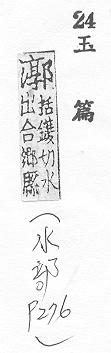 24
玉篇
漷
括鑊切水
出合鄉縣
(水部
P276)